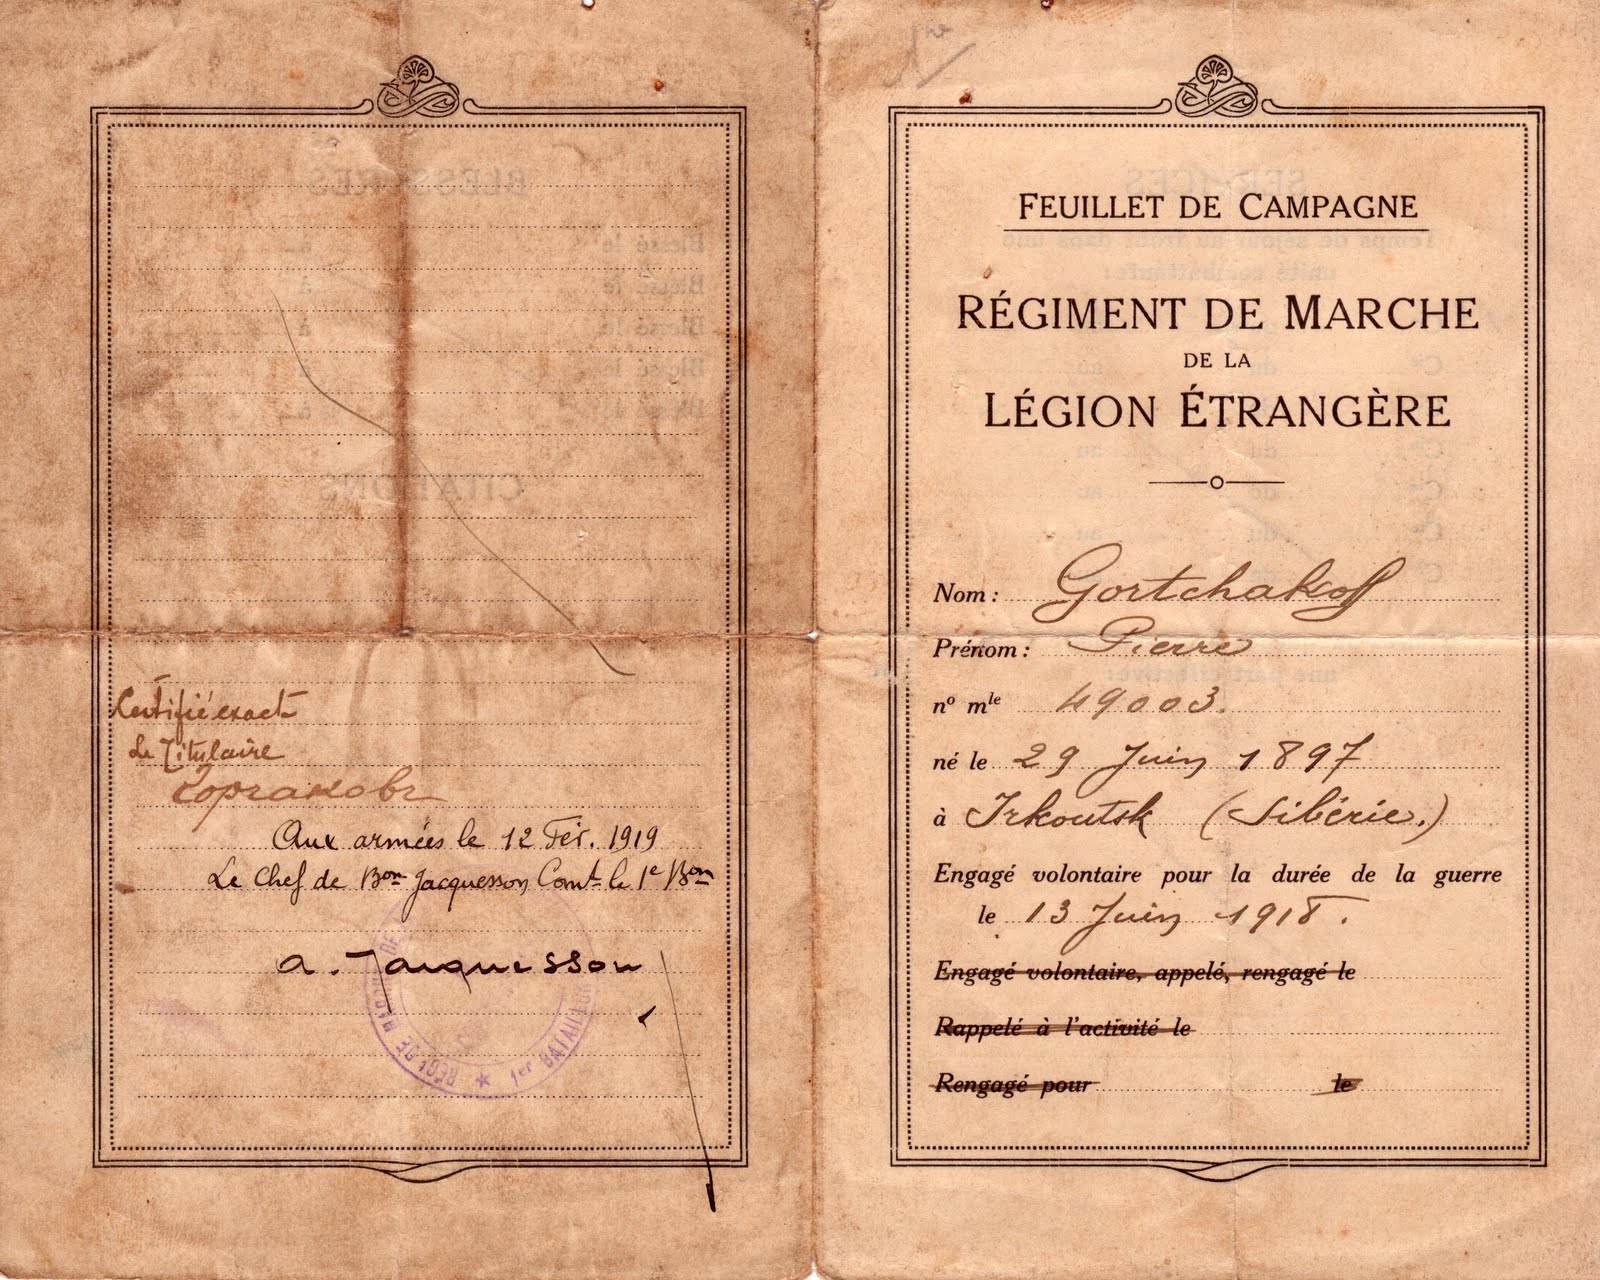 Certifié exact
Le Titulaire
Aux armées le 12 Fév. 1919
Le Chef de Bon Jacquesson Comt le 1e Bon
a. Jacquesson
RÉGT DE MARCHE DE
★ 1er BATAILLON
FEUILLET DE CAMPAGNE
RÉGIMENT DE MARCHE
DE LA
LÉGION ÉTRANGÈRE
Nom : Gortchakoff
Prénom : Pierre
no mle 49003.
né le 29 Juin 1897
à Irkoutsk (Sibérie.)
Engagé volontaire pour la durée de la guerre
le 13 Juin 1918.
Engagé volontaire, appelé, rengagé le
Rappelé à l'activité le
Rengagé pour le